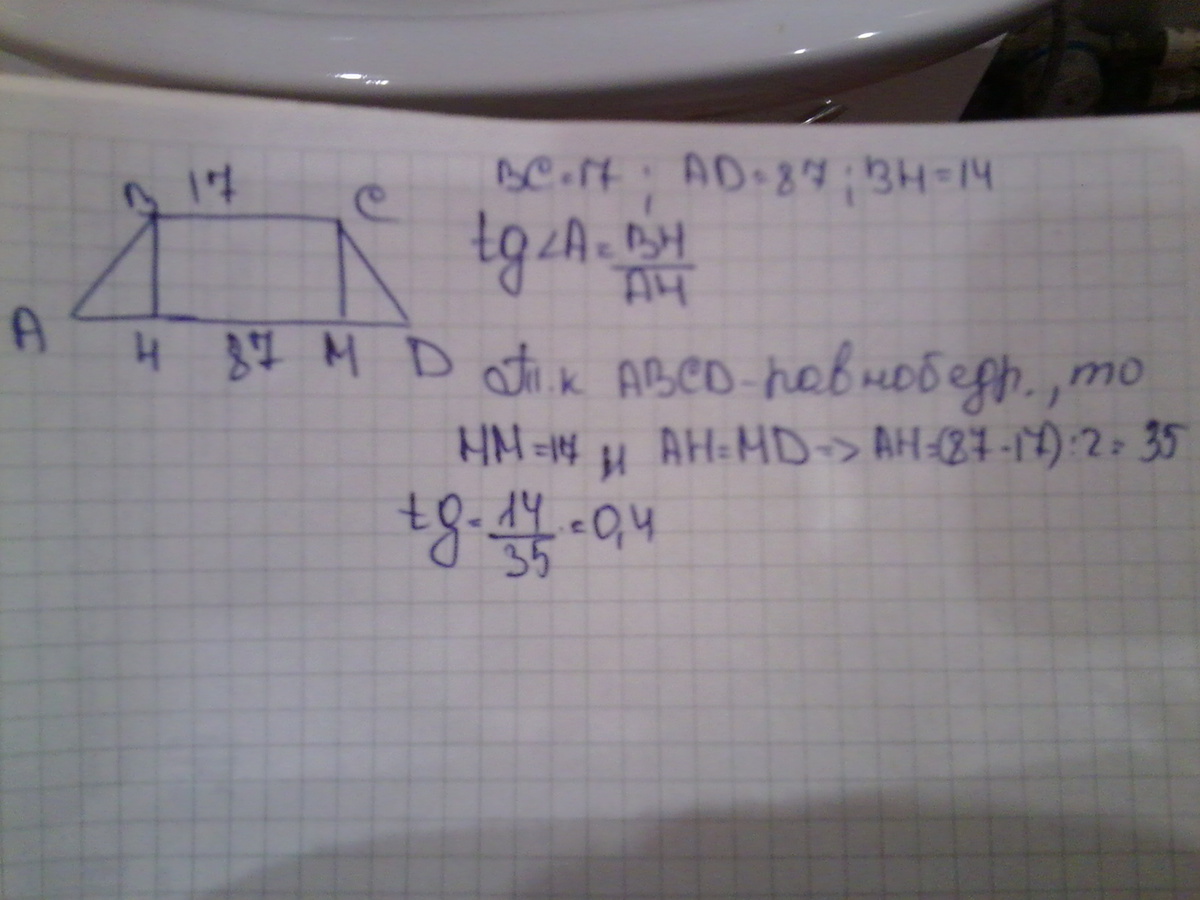 B 17 C
A H 87 M D
BC=17 ; AD=87 ; BH=14
tg∠A= BH/AH
Т.к ABCD-равнобедр., то
HM=17 и AH=MD=> AH=(87-17):2=35
tg= 14/35 =0,4